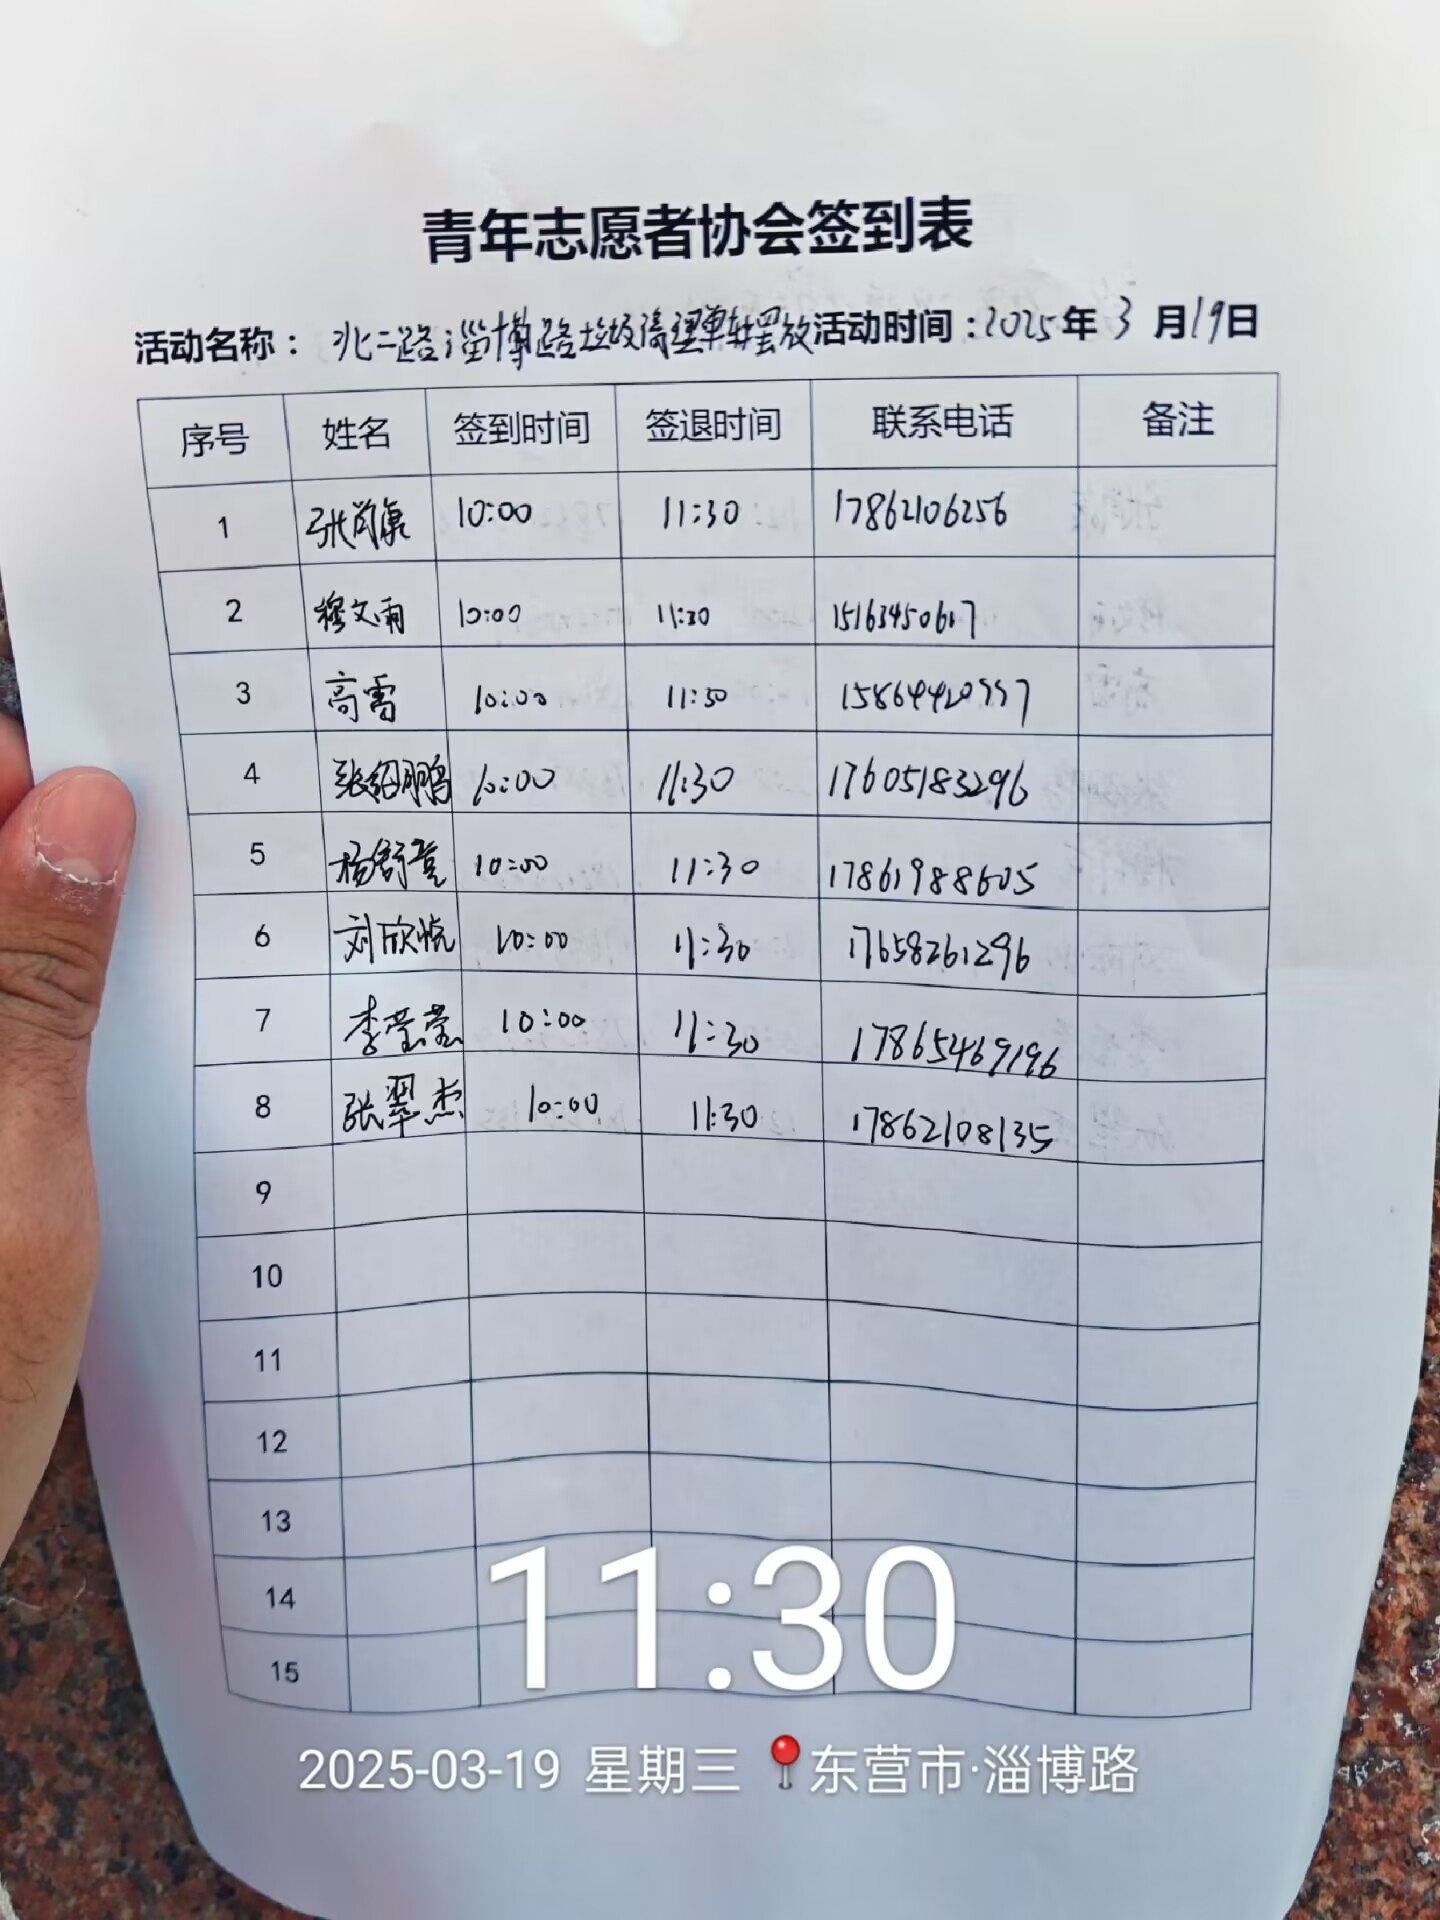 青年志愿者协会签到表
活动名称：北二路淄博路垃圾清理单车摆放 活动时间：2025年3月19日
序号 姓名 签到时间 签退时间 联系电话 备注
1 张尚康 10:00 11:30 17862106256
2 穆文雨 10:00 11:30 15163450617
3 高雪 10:00 11:30
4 张绍鹏 10:00 11:30 17605183296
5 杨舒萱 10:00 11:30 17861988605
6 刘欣悦 10:00 11:30 17658261296
7 李莹莹 10:00 11:30 17865469196
8 张翠杰 10:00 11:30 17862108135
9
10
11
12
13
14
15
11:30
2025-03-19 星期三 东营市·淄博路